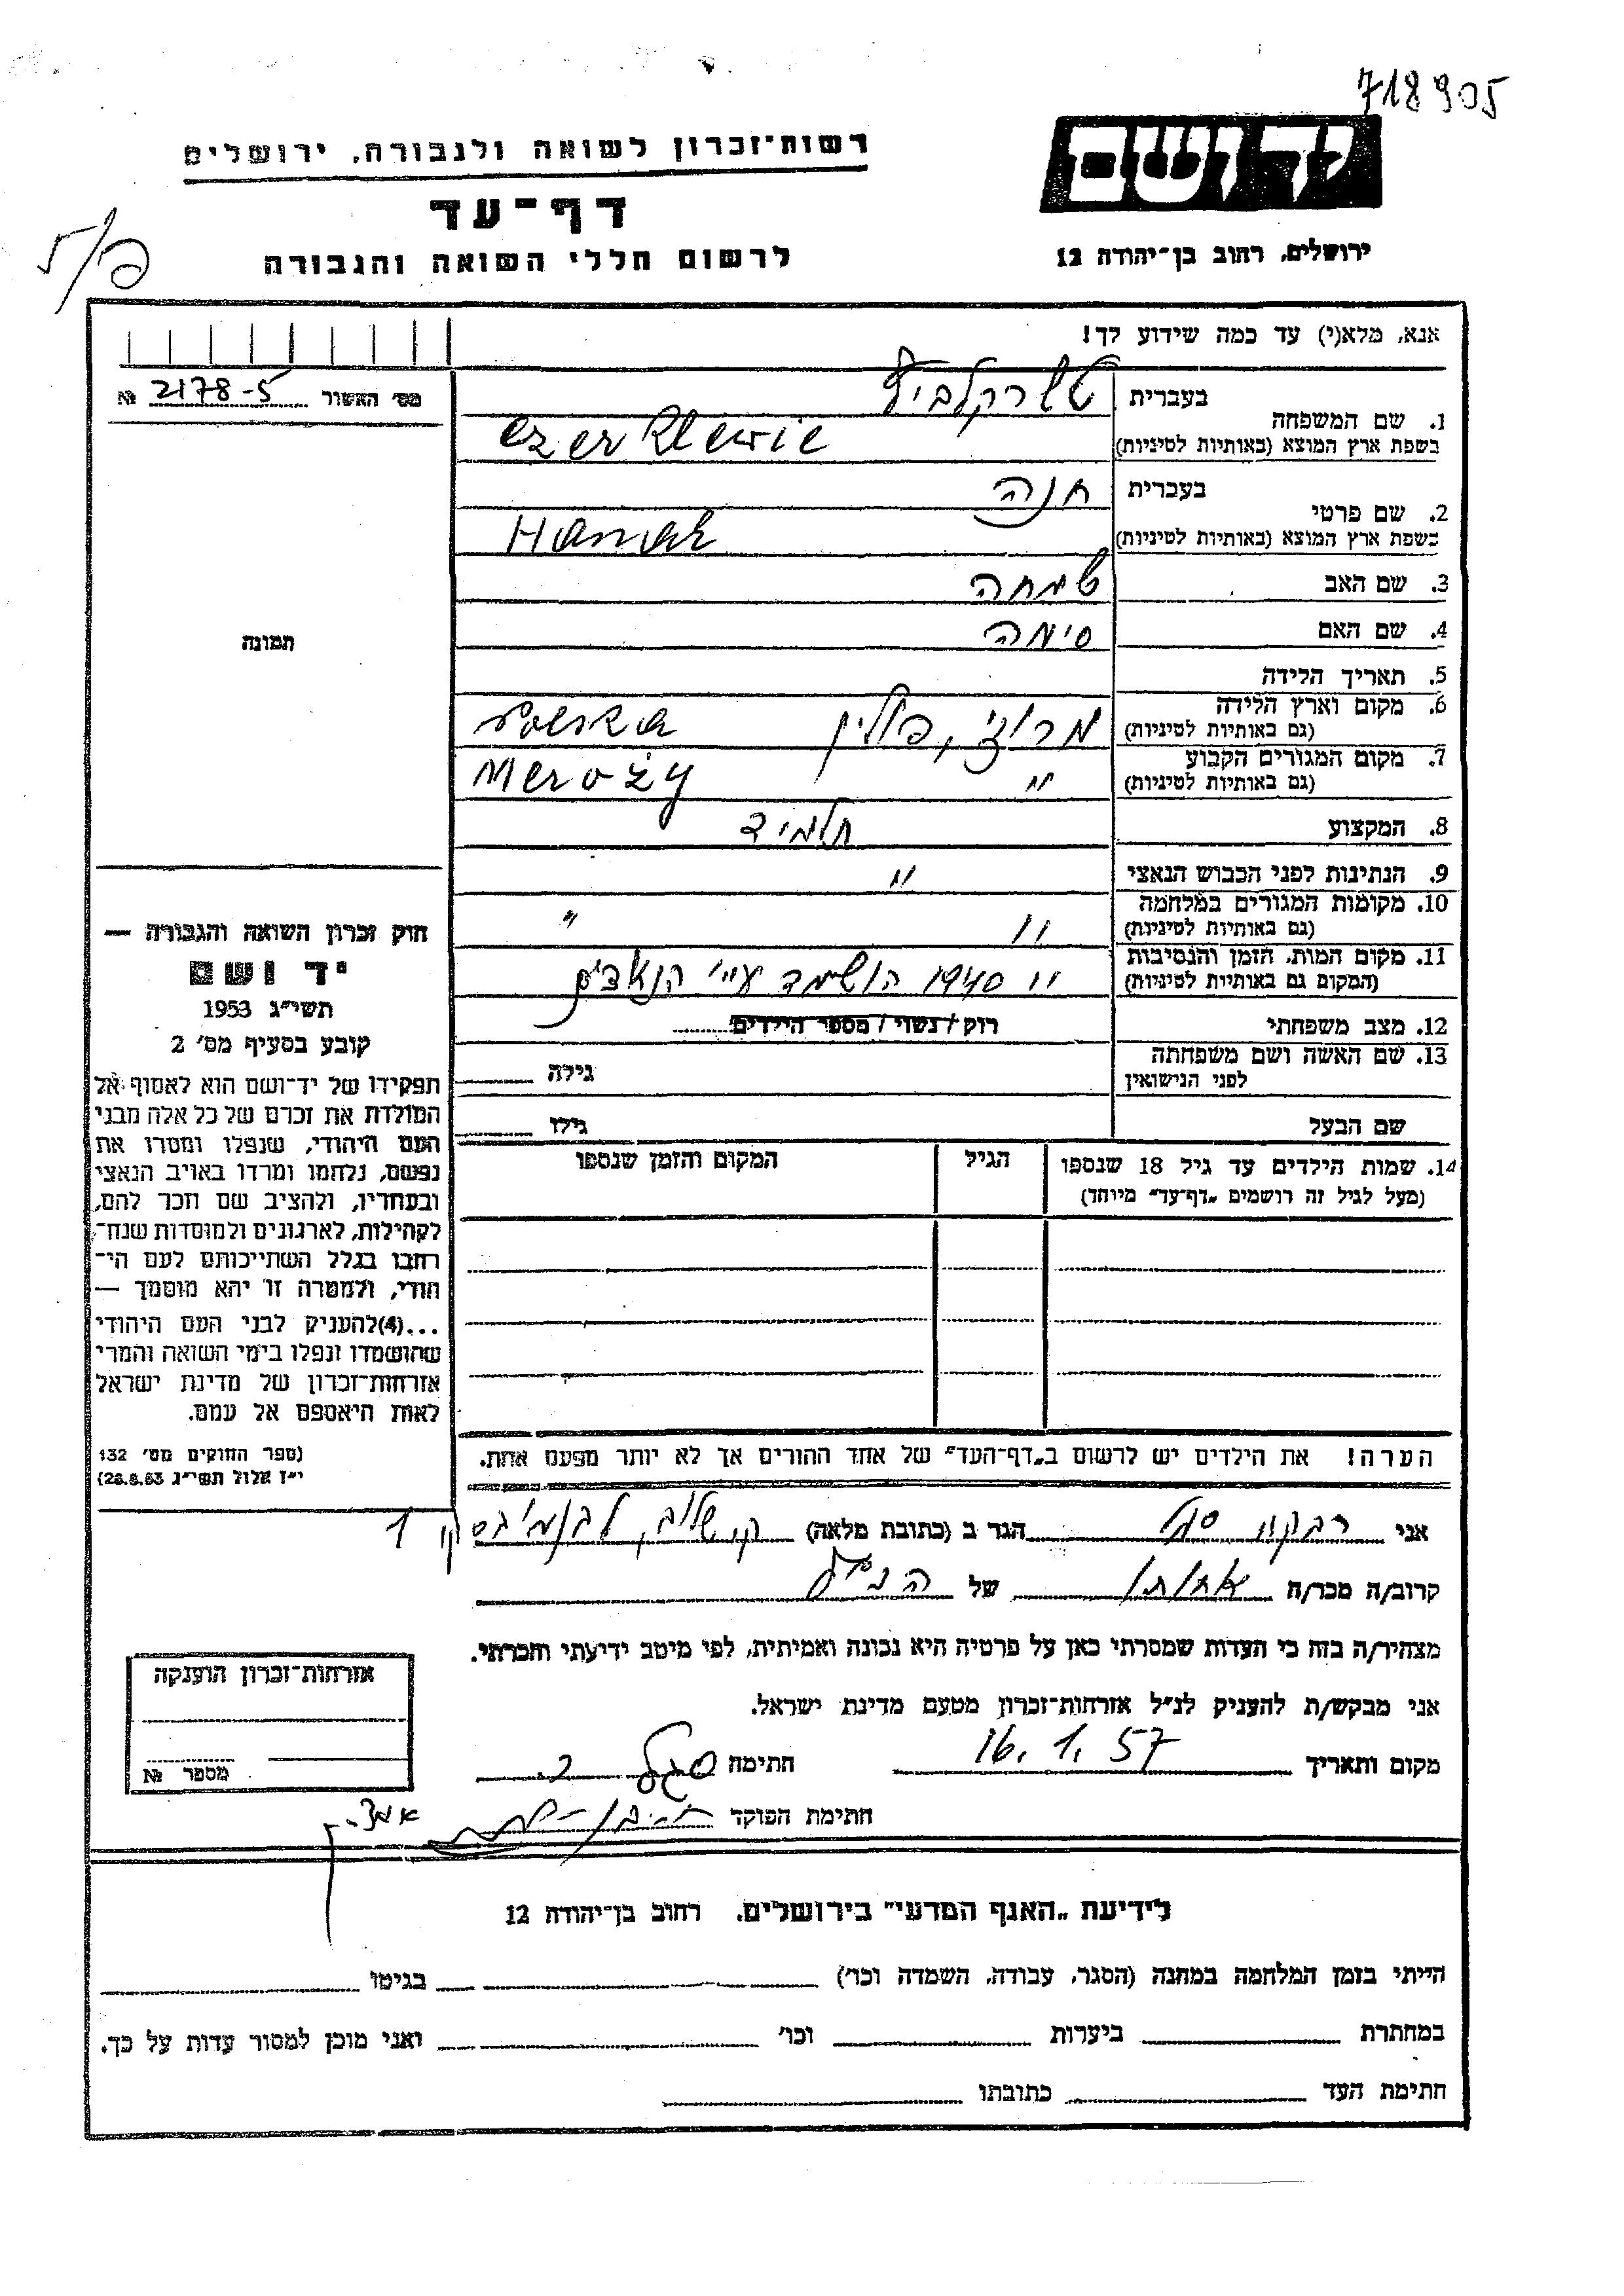 718905
יד ושם
רשות־זכרון לשואה ולגבורה, ירושלים
דף־עד
לרשום חללי השואה והגבורה
ירושלים, רחוב בן־יהודה 12
אנא, מלא(י) עד כמה שידוע לך!
מס׳ האשור 2178-5 №
1. שם המשפחה
בעברית טשרקלביץ
בשפת ארץ המוצא (באותיות לטיניות) Czerklewic
2. שם פרטי
בעברית חנה
בשפת ארץ המוצא (באותיות לטיניות) Hanah
3. שם האב שמחה
4. שם האם סימה
5. תאריך הלידה
6. מקום וארץ הלידה
(גם באותיות לטיניות) מרוזי, פולין Polska
7. מקום המגורים הקבוע
(גם באותיות לטיניות) " Meroży
8. המקצוע תלמיד
9. הנתינות לפני הכבוש הנאצי "
10. מקומות המגורים במלחמה
(גם באותיות לטיניות) " "
11. מקום המות, הזמן והנסיבות
(המקום גם באותיות לטיניות) " 1940 הושמד ע"י הנאצים
12. מצב משפחתי רוק / נשוי / מספר הילדים
13. שם האשה ושם משפחתה
לפני הנישואין גילה
שם הבעל גילו
14. שמות הילדים עד גיל 18 שנספו הגיל המקום והזמן שנספו
(מעל לגיל זה רושמים „דף־עד" מיוחד)
הערה! את הילדים יש לרשום ב„דף־העד" של אחד ההורים אך לא יותר מפעם אחת.
תמונה
חוק זכרון השואה והגבורה —
יד ושם
תשי״ג 1953
קובע בסעיף מס׳ 2
תפקידו של יד־ושם הוא לאסוף אל
המולדת את זכרם של כל אלה מבני
העם היהודי, שנפלו ומסרו את
נפשם, נלחמו ומרדו באויב הנאצי
ובעוזריו, ולהציב שם וזכר להם,
לקהילות, לארגונים ולמוסדות שנח־
רבו בגלל השתייכותם לעם הי־
הודי, ולמטרה זו יהא מוסמך —
...(4)להעניק לבני העם היהודי
שהושמדו ונפלו בימי השואה והמרי
אזרחות־זכרון של מדינת ישראל
לאות היאספם אל עמם.
(ספר החוקים מס׳ 132
י״ז אלול תשי״ג 28.8.53)
אני רבקה הגר ב (כתובת מלאה) 1
קרוב/ה מכר/ה אחותי של הנ"ל
מצהיר/ה בזה כי העדות שמסרתי כאן על פרטיה היא נכונה ואמיתית, לפי מיטב ידיעתי והכרתי.
אני מבקש/ת להעניק לנ״ל אזרחות־זכרון מטעם מדינת ישראל.
מקום ותאריך 16.1.57 חתימה סגל ר.
חתימת הפוקד
אזרחות־זכרון הוענקה
מספר №
לידיעת „האגף המדעי" בירושלים. רחוב בן־יהודה 12
הייתי בזמן המלחמה במחנה (הסגר, עבודה, השמדה וכו׳) בגיטו
במחתרת ביערות וכו׳ ואני מוכן למסור עדות על כך.
חתימת העד כתובתו